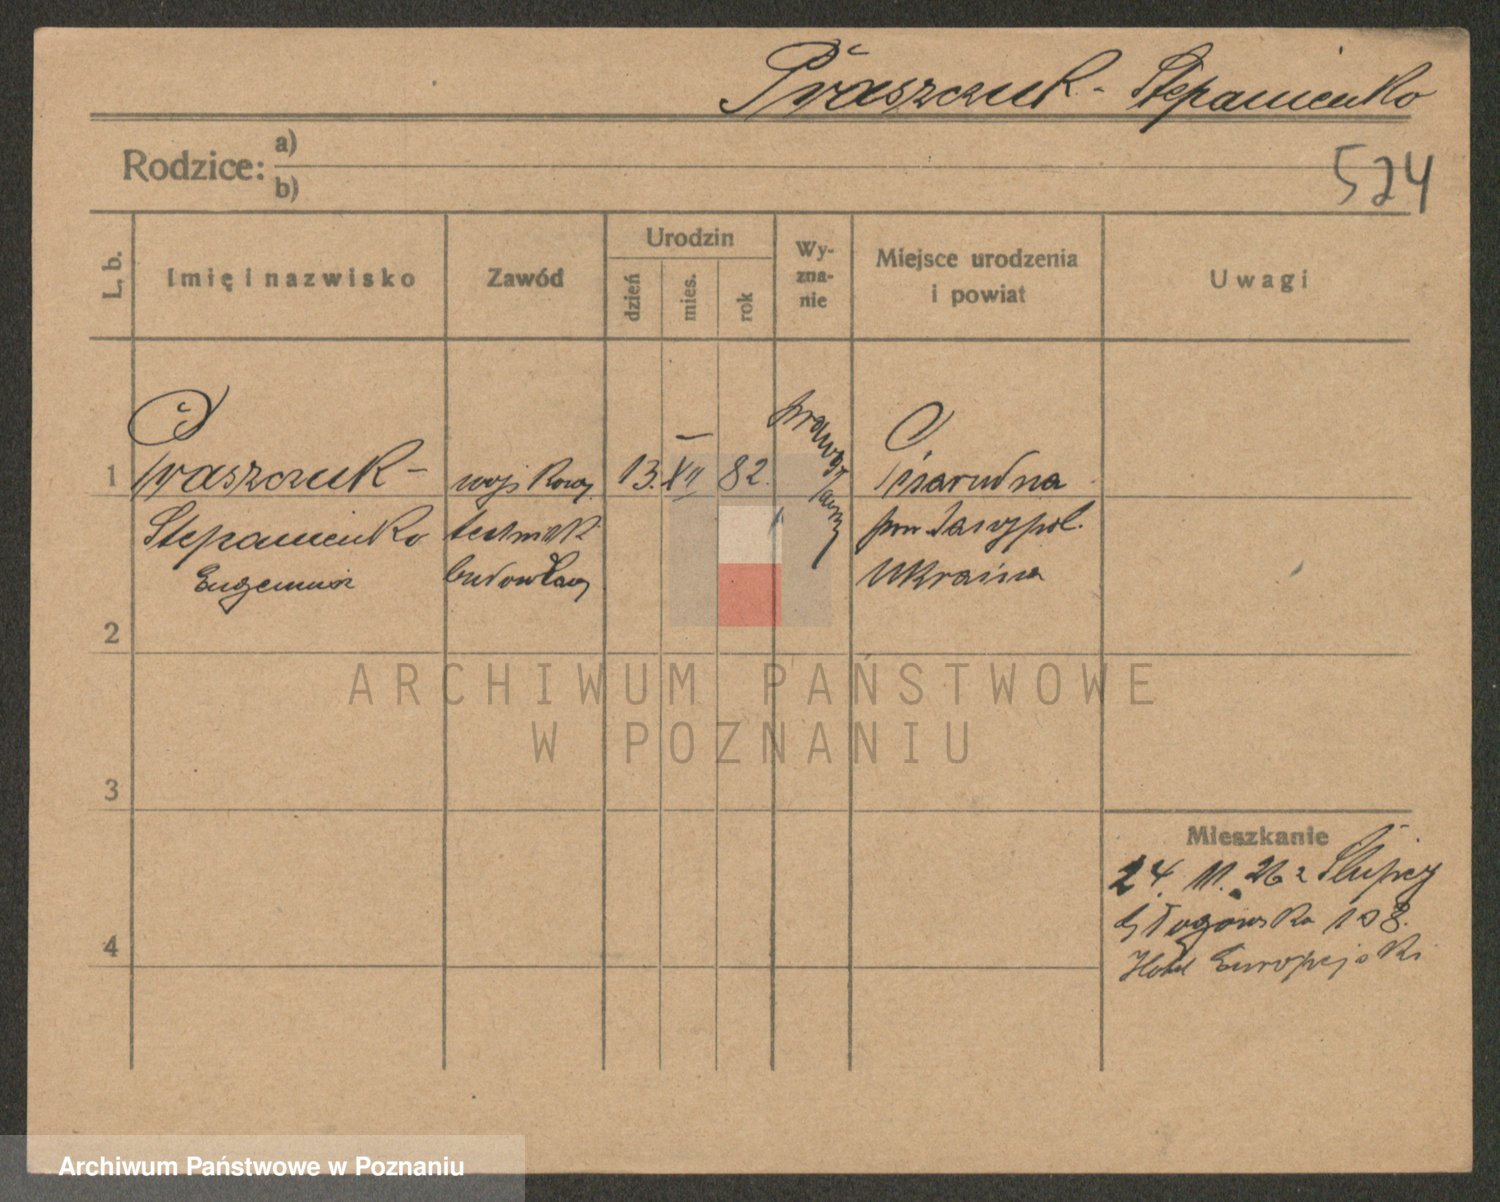 Praszczuk - Stepanienko
Rodzice: a)
b)
524
L. b.
Imię i nazwisko
Zawód
Urodzin
dzień
mies.
rok
Wy-
zna-
nie
Miejsce urodzenia
i powiat
Uwagi
1
Praszczuk -
Stepanienko
Eugeniusz
wojskowy
technik
budowlany
13.
XII
82.
prawosławny
pow.
Ukraina
2
3
4
Mieszkanie
24. 11. 26 z Słupcy
Głogowska 108.
Hotel Europejski
ARCHIWUM PAŃSTWOWE
W POZNANIU
Archiwum Państwowe w Poznaniu